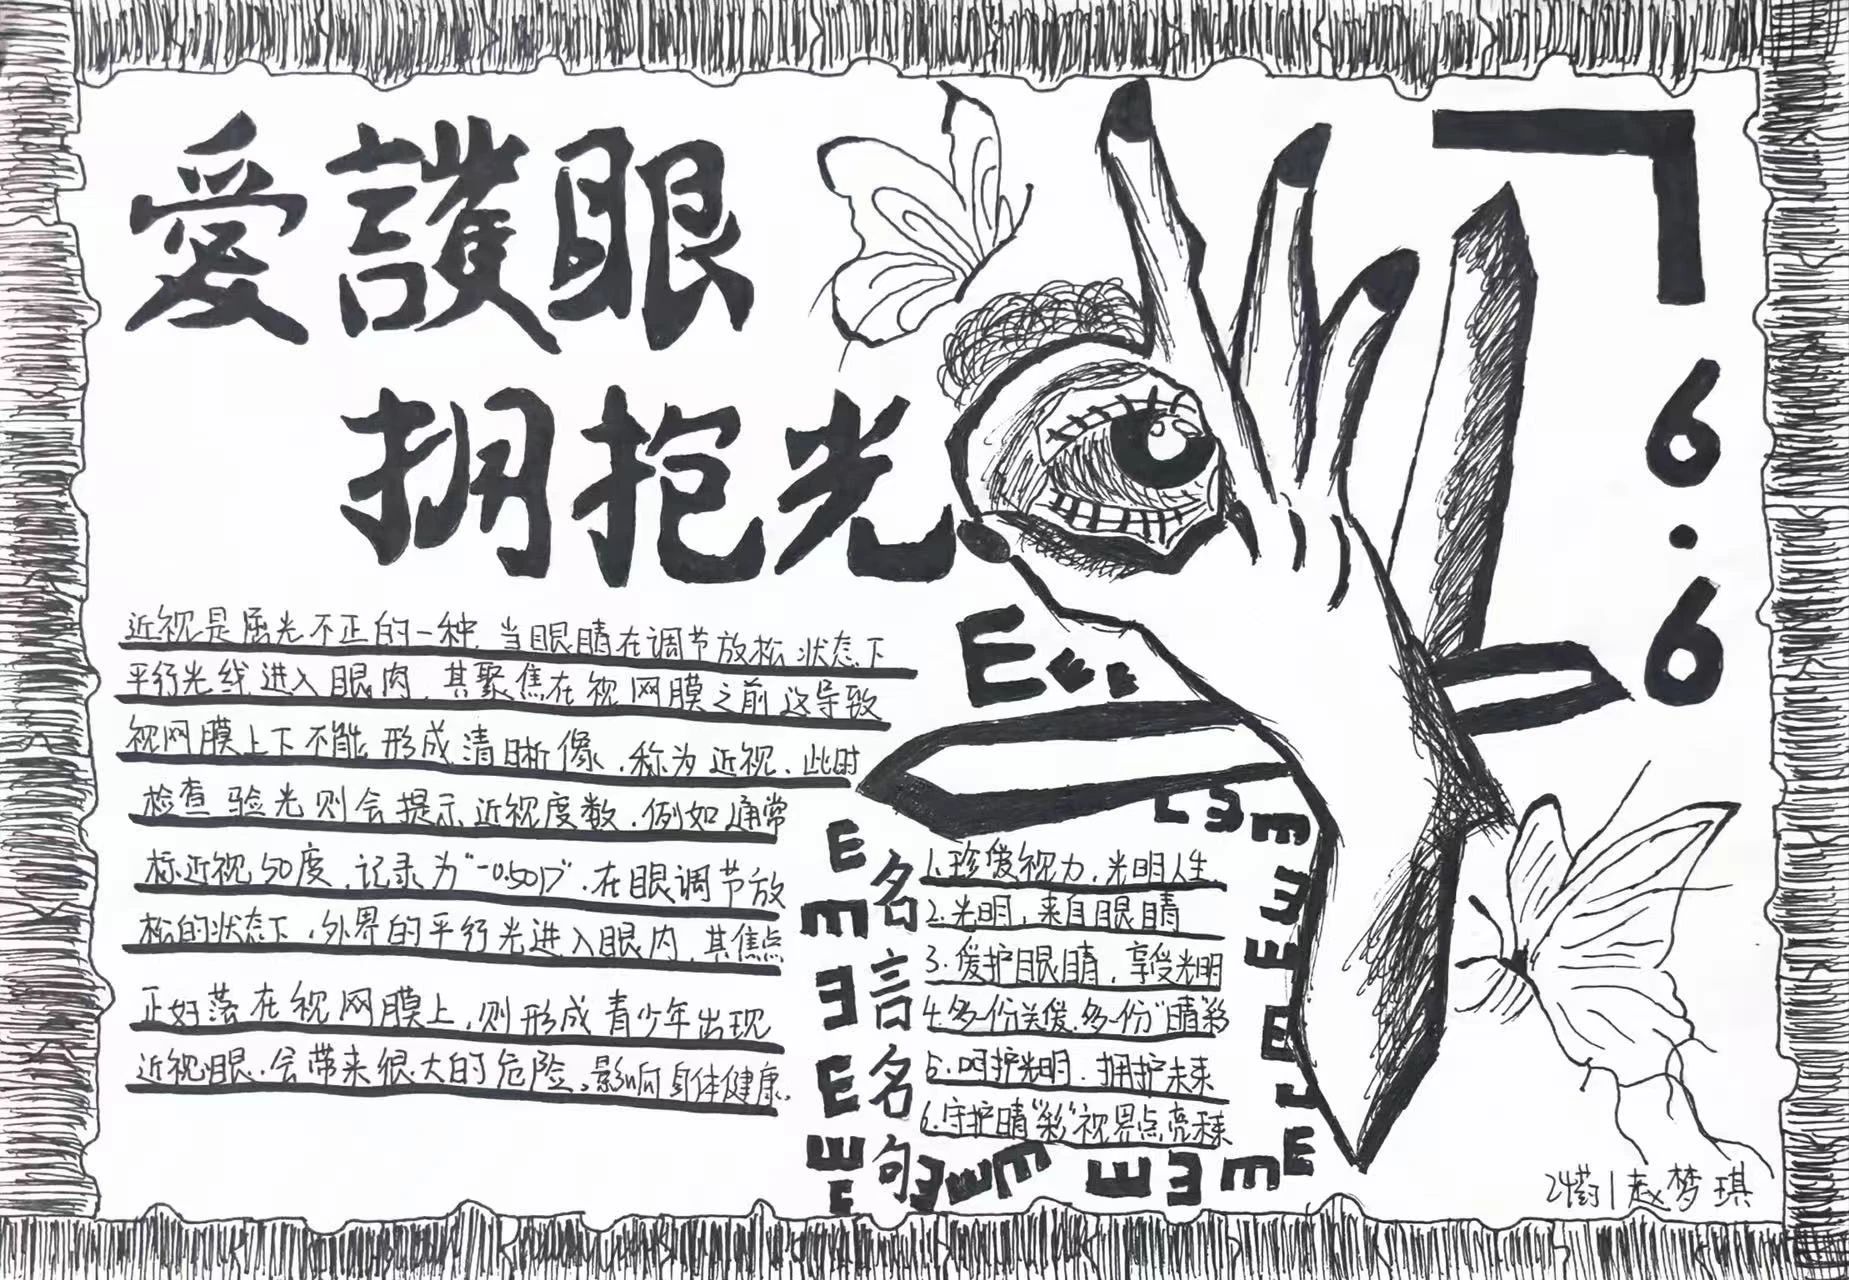 愛護眼
拥抱光
6.6
近视是屈光不正的一种.当眼睛在调节放松状态下
平行光线进入眼内,其聚焦在视网膜之前这导致
视网膜上下不能形成清晰像.称为近视、此时
检查验光则会提示近视度数.例如通常
标近视50度.记录为"-0.50D".在眼调节放
松的状态下.外界的平行光进入眼内,其焦点
正好落在视网膜上,则形成青少年出现
近视眼.会带来很大的危险,影响身体健康.
E E E
名言名句
1.珍爱视力,光明人生
2.光明,来自眼睛
3.爱护眼睛,享受光明
4.多一份关爱.多一份"睛"彩
5.呵护光明.拥护未来
6.守护睛"彩"视界点亮未来
24药1赵梦琪